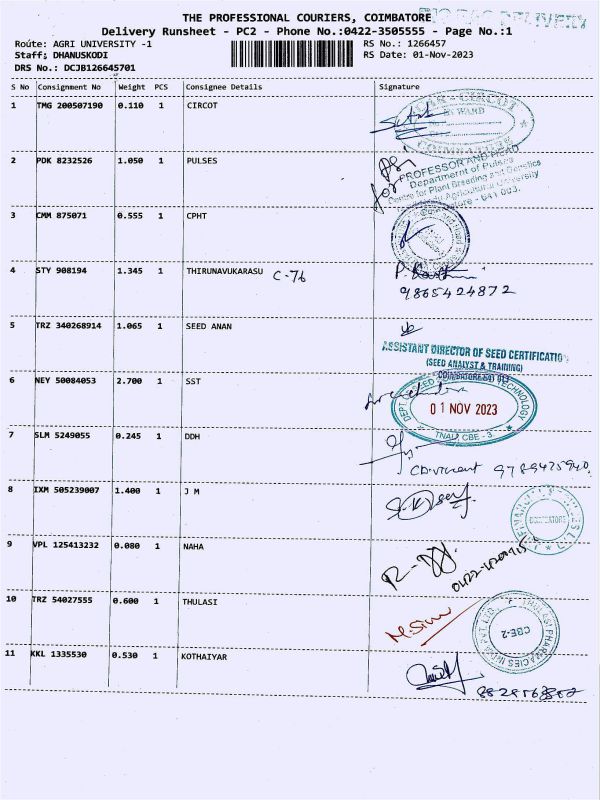 THE PROFESSIONAL COURIERS, COIMBATORE
Delivery Runsheet - PC2 - Phone No.:0422-3505555 - Page No.:1
Route: AGRI UNIVERSITY -1
RS No.: 1266457
Staff: DHANUSKODI
RS Date: 01-Nov-2023
DRS No.: DCJB126645701
S No Consignment No Weight PCS Consignee Details Signature
1 TMG 200507190 0.110 1 CIRCOT
WARD
COIMBATORE
2 PDK 8232526 1.050 1 PULSES
PROFESSOR AND HEAD
Department of Pulses
Centre for Plant Breeding and Genetics
Agricultural University
641 003.
3 CMM 875071 0.555 1 CPHT
4 STY 908194 1.345 1 THIRUNAVUKARASU C-76
9865424872
5 TRZ 340268914 1.065 1 SEED ANAN
ASSISTANT DIRECTOR OF SEED CERTIFICATIO
(SEED ANALYST & TRAINING)
COIMBATORE-641 013
6 NEY 50084053 2.700 1 SST
DEPT. SEED TECHNOLOGY
01 NOV 2023
TNAU, CBE - 3
7 SLM 5249055 0.245 1 DDH
9789475940
8 IXM 505239007 1.400 1 J M
COIMBATORE
9 VPL 125413232 0.080 1 NAHA
10 TRZ 54027555 0.600 1 THULASI
THULASI PHARMACIES INDIA PVT. LTD.
CBE-2
11 KKL 1335530 0.530 1 KOTHAIYAR